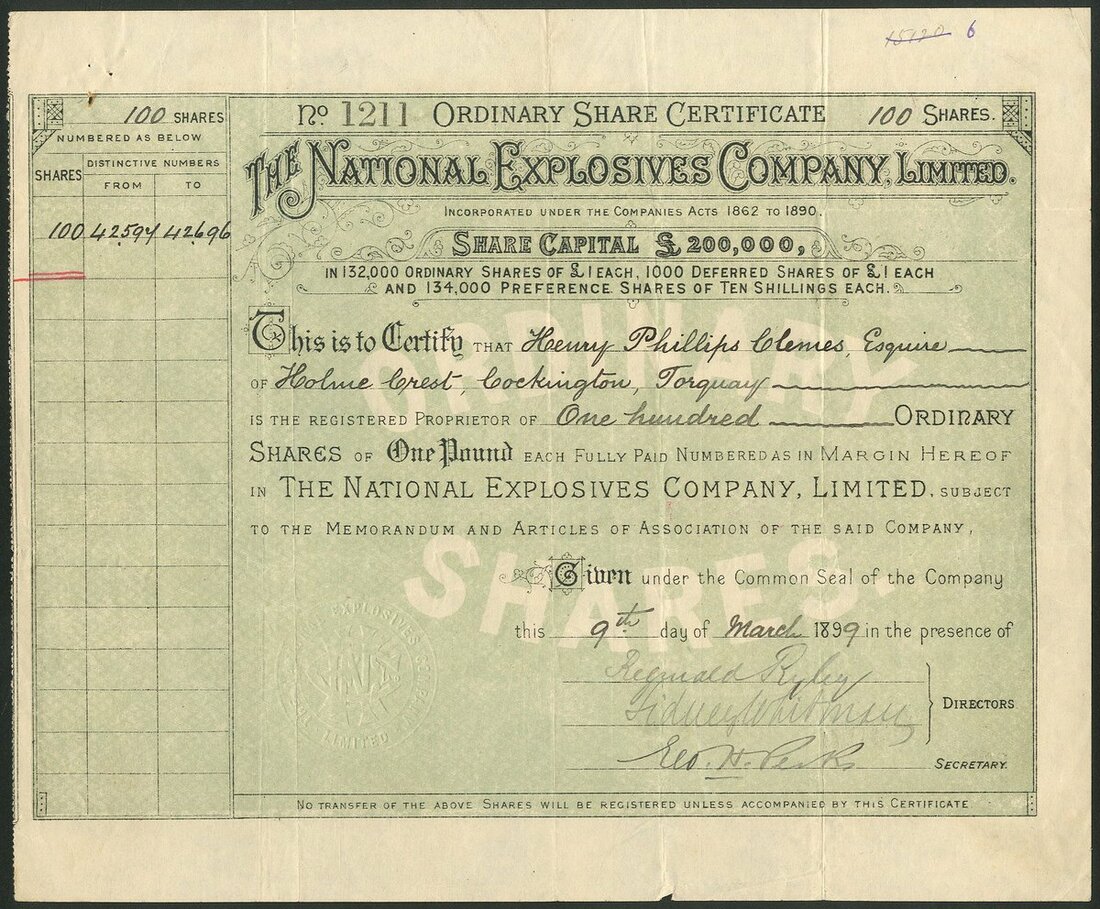 15120 6
100 SHARES
NUMBERED AS BELOW
SHARES
DISTINCTIVE NUMBERS
FROM TO
100 42597 42696
No 1211 ORDINARY SHARE CERTIFICATE 100 SHARES.
THE NATIONAL EXPLOSIVES COMPANY, LIMITED.
INCORPORATED UNDER THE COMPANIES ACTS 1862 TO 1890.
SHARE CAPITAL £200,000,
IN 132,000 ORDINARY SHARES OF £1 EACH, 1000 DEFERRED SHARES OF £1 EACH
AND 134,000 PREFERENCE SHARES OF TEN SHILLINGS EACH.
ORDINARY
SHARES.
This is to Certify THAT Henry Phillips Clemes, Esquire
OF Holme Crest, Cockington, Torquay
IS THE REGISTERED PROPRIETOR OF One hundred ORDINARY
SHARES OF One Pound EACH FULLY PAID NUMBERED AS IN MARGIN HEREOF
IN THE NATIONAL EXPLOSIVES COMPANY, LIMITED, SUBJECT
TO THE MEMORANDUM AND ARTICLES OF ASSOCIATION OF THE SAID COMPANY,
Given under the Common Seal of the Company
this 9th day of March 1899 in the presence of
Reginald Ryley
Sidney Whitman
DIRECTORS
Geo. H. Perks
SECRETARY.
EXPLOSIVES
LIMITED
NO TRANSFER OF THE ABOVE SHARES WILL BE REGISTERED UNLESS ACCOMPANIED BY THIS CERTIFICATE